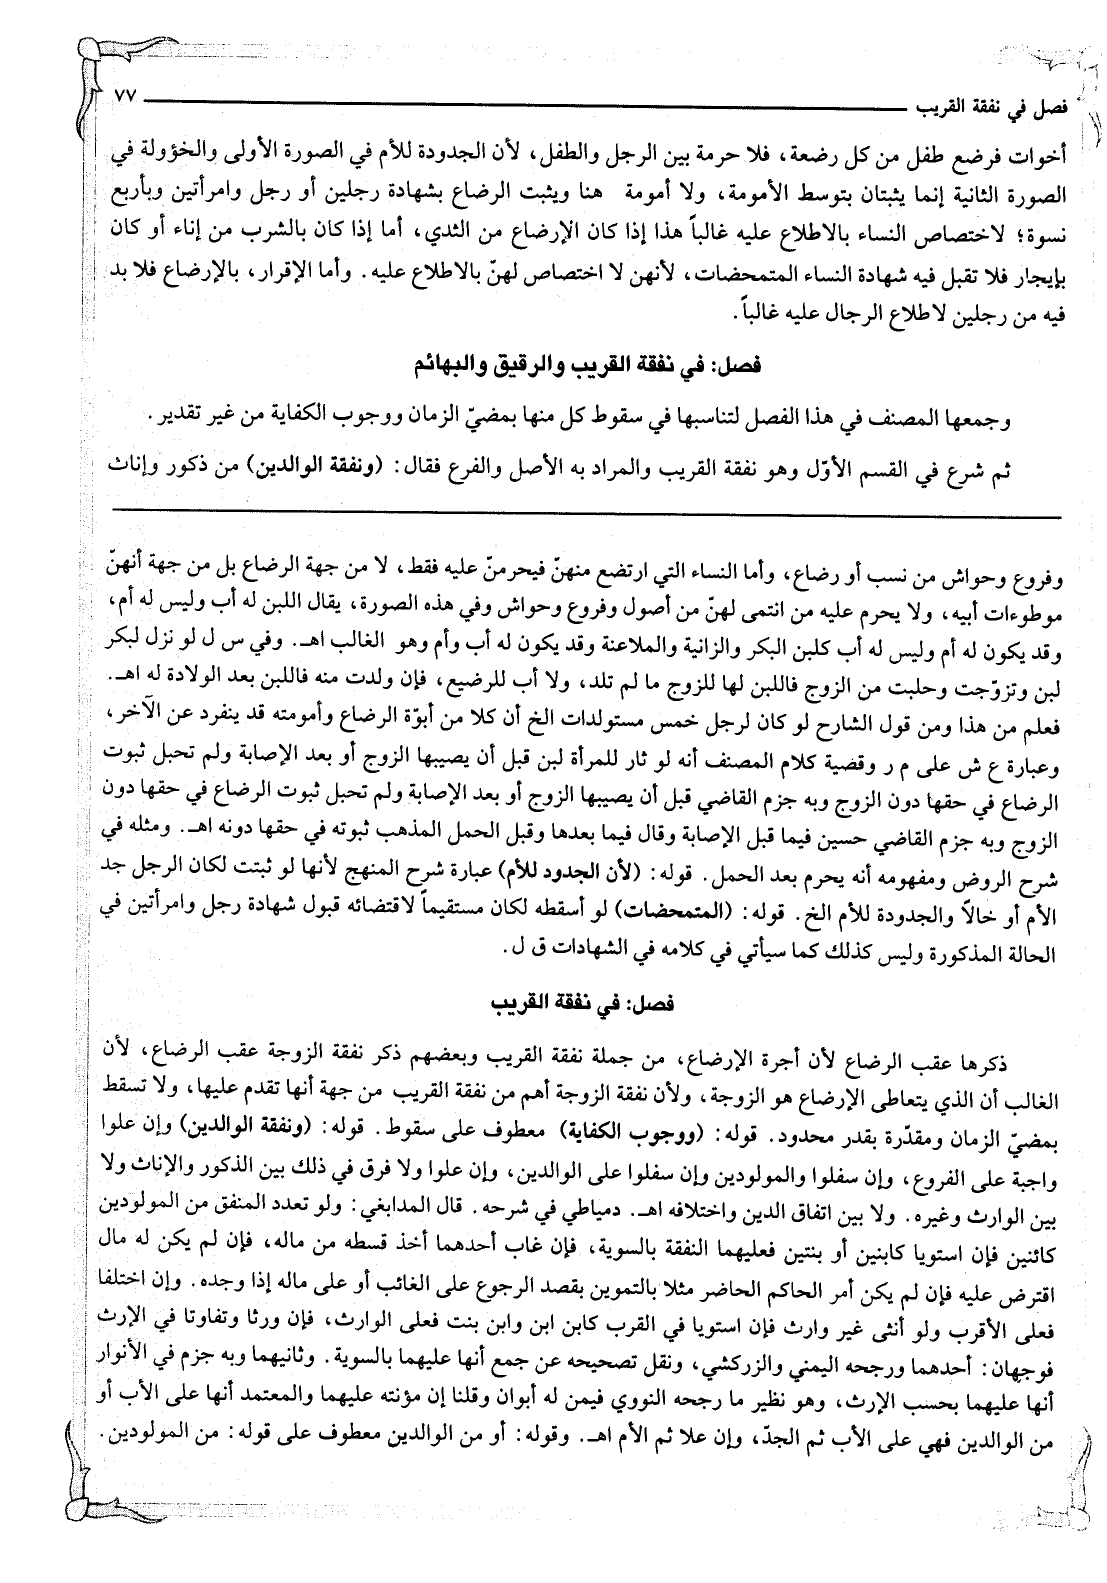 فصل في نفقة القريب ٧٧
أخوات فرضع طفل من كل رضعة، فلا حرمة بين الرجل والطفل، لأن الجدودة للأم في الصورة الأولى والخؤولة في
الصورة الثانية إنما يثبتان بتوسط الأمومة، ولا أمومة هنا ويثبت الرضاع بشهادة رجلين أو رجل وامرأتين وبأربع
نسوة؛ لاختصاص النساء بالاطلاع عليه غالباً هذا إذا كان الإرضاع من الثدي، أما إذا كان بالشرب من إناء أو كان
بإيجار فلا تقبل فيه شهادة النساء المتمحضات، لأنهن لا اختصاص لهنّ بالاطلاع عليه. وأما الإقرار، بالإرضاع فلا بد
فيه من رجلين لاطلاع الرجال عليه غالباً.
فصل: في نفقة القريب والرقيق والبهائم
وجمعها المصنف في هذا الفصل لتناسبها في سقوط كل منها بمضيّ الزمان ووجوب الكفاية من غير تقدير.
ثم شرع في القسم الأوّل وهو نفقة القريب والمراد به الأصل والفرع فقال: (ونفقة الوالدين) من ذكور وإناث
وفروع وحواش من نسب أو رضاع، وأما النساء التي ارتضع منهنّ فيحرمنّ عليه فقط، لا من جهة الرضاع بل من جهة أنهنّ
موطوءات أبيه، ولا يحرم عليه من انتمى لهنّ من أصول وفروع وحواش وفي هذه الصورة، يقال اللبن له أب وليس له أم،
وقد يكون له أم وليس له أب كلبن البكر والزانية والملاعنة وقد يكون له أب وأم وهو الغالب اهـ. وفي س ل لو نزل لبكر
لبن وتزوّجت وحلبت من الزوج فاللبن لها للزوج ما لم تلد، ولا أب للرضيع، فإن ولدت منه فاللبن بعد الولادة له اهـ.
فعلم من هذا ومن قول الشارح لو كان لرجل خمس مستولدات الخ أن كلا من أبوّة الرضاع وأمومته قد ينفرد عن الآخر،
وعبارة ع ش على م ر وقضية كلام المصنف أنه لو ثار للمرأة لبن قبل أن يصيبها الزوج أو بعد الإصابة ولم تحبل ثبوت
الرضاع في حقها دون الزوج وبه جزم القاضي قبل أن يصيبها الزوج أو بعد الإصابة ولم تحبل ثبوت الرضاع في حقها دون
الزوج وبه جزم القاضي حسين فيما قبل الإصابة وقال فيما بعدها وقبل الحمل المذهب ثبوته في حقها دونه اهـ. ومثله في
شرح الروض ومفهومه أنه يحرم بعد الحمل. قوله: (لأن الجدود للأم) عبارة شرح المنهج لأنها لو ثبتت لكان الرجل جد
الأم أو خالاً والجدودة للأم الخ. قوله: (المتمحضات) لو أسقطه لكان مستقيماً لاقتضائه قبول شهادة رجل وامرأتين في
الحالة المذكورة وليس كذلك كما سيأتي في كلامه في الشهادات ق ل.
فصل: في نفقة القريب
ذكرها عقب الرضاع لأن أجرة الإرضاع، من جملة نفقة القريب وبعضهم ذكر نفقة الزوجة عقب الرضاع، لأن
الغالب أن الذي يتعاطى الإرضاع هو الزوجة، ولأن نفقة الزوجة أهم من نفقة القريب من جهة أنها تقدم عليها، ولا تسقط
بمضيّ الزمان ومقدّرة بقدر محدود. قوله: (ووجوب الكفاية) معطوف على سقوط. قوله: (ونفقة الوالدين) وإن علوا
واجبة على الفروع، وإن سفلوا والمولودين وإن سفلوا على الوالدين، وإن علوا ولا فرق في ذلك بين الذكور والإناث ولا
بين الوارث وغيره. ولا بين اتفاق الدين واختلافه اهـ. دمياطي في شرحه. قال المدابغي: ولو تعدد المنفق من المولودين
كاثنين فإن استويا كابنين أو بنتين فعليهما النفقة بالسوية، فإن غاب أحدهما أخذ قسطه من ماله، فإن لم يكن له مال
اقترض عليه فإن لم يكن أمر الحاكم الحاضر مثلا بالتموين بقصد الرجوع على الغائب أو على ماله إذا وجده. وإن اختلفا
فعلى الأقرب ولو أنثى غير وارث فإن استويا في القرب كابن ابن وابن بنت فعلى الوارث، فإن ورثا وتفاوتا في الإرث
فوجهان: أحدهما ورجحه اليمني والزركشي، ونقل تصحيحه عن جمع أنها عليهما بالسوية. وثانيهما وبه جزم في الأنوار
أنها عليهما بحسب الإرث، وهو نظير ما رجحه النووي فيمن له أبوان وقلنا إن مؤنته عليهما والمعتمد أنها على الأب أو
من الوالدين فهي على الأب ثم الجدّ، وإن علا ثم الأم اهـ. وقوله: أو من الوالدين معطوف على قوله: من المولودين.